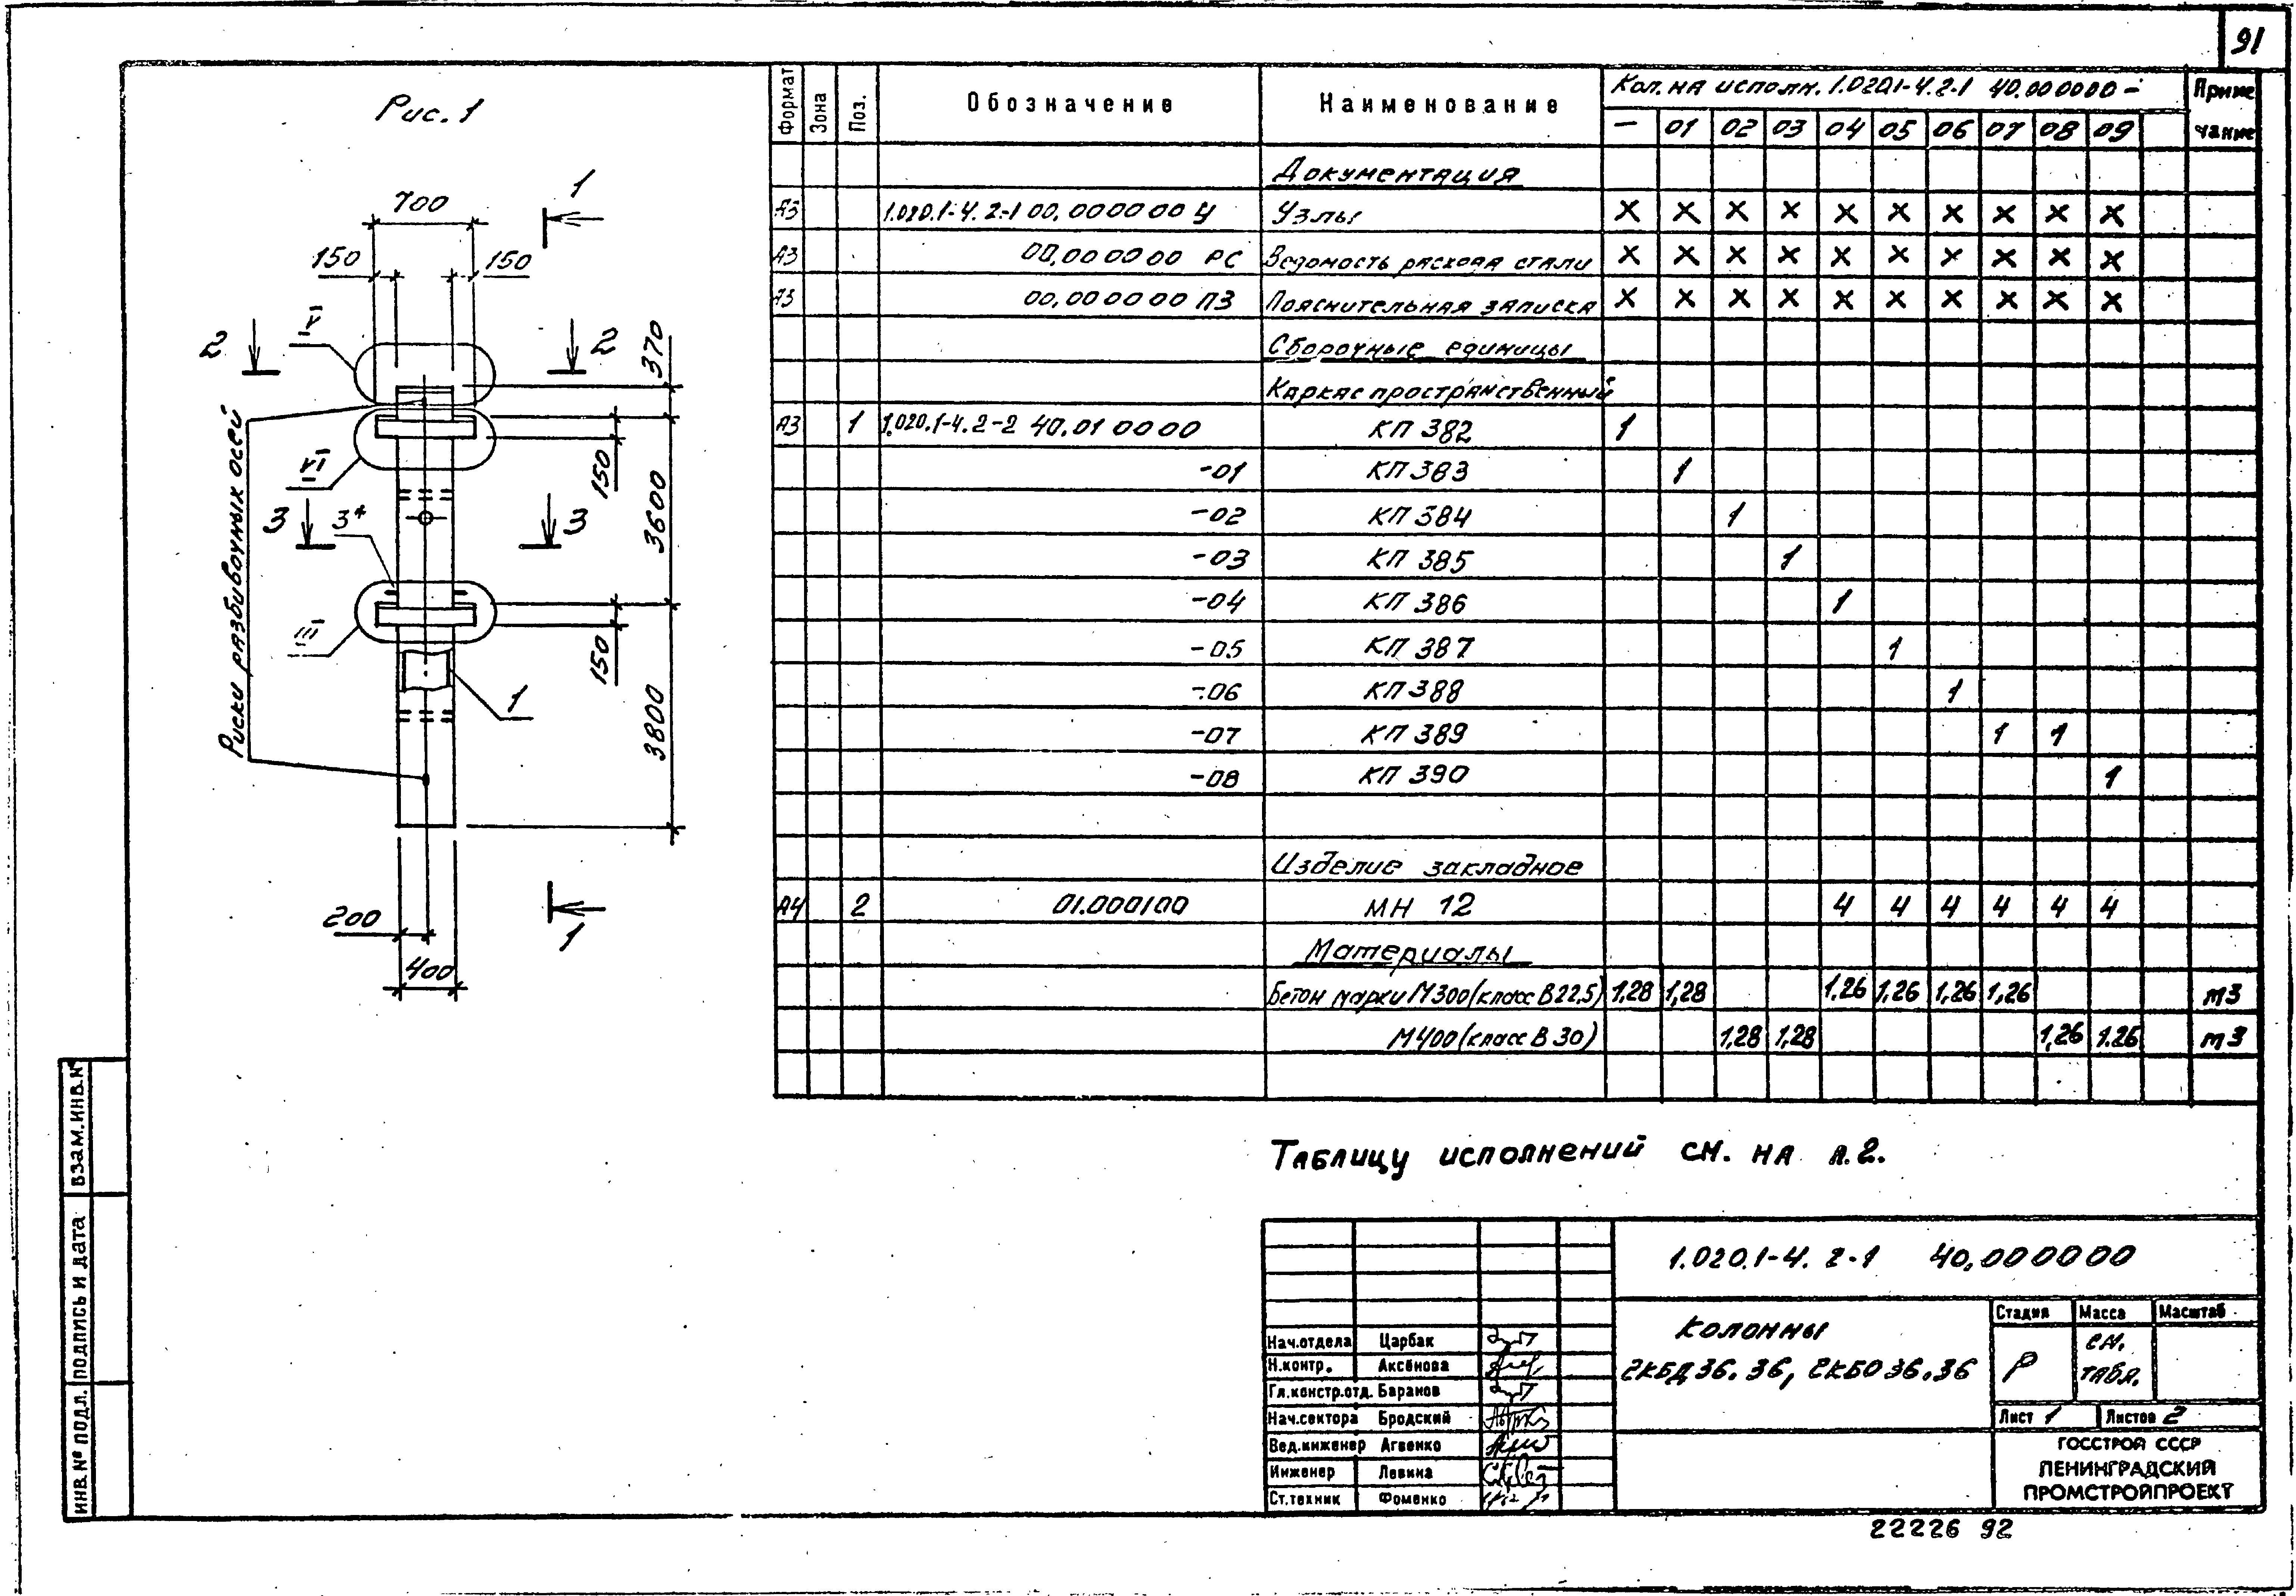 91
Рис. 1
700
1
150 150
V
2 2
370
VI
150
3 3* 3
3600
III
150
1
3800
Риски разбивочных осей
200
400
1
Формат Зона Поз. Обозначение Наименование Кол. на исполн. 1.020.1-4.2-1 40.000000 - Приме
— 01 02 03 04 05 06 07 08 09 чание
Документация
А3 1.020.1-4.2-1 00.000000 У Узлы X X X X X X X X X X
А3 00.000000 РС Ведомость расхода стали X X X X X X X X X X
А3 00.000000 ПЗ Пояснительная записка X X X X X X X X X X
Сборочные единицы
Каркас пространственный
А3 1 1.020.1-4.2-2 40.010000 КП 382 1
-01 КП 383 1
-02 КП 384 1
-03 КП 385 1
-04 КП 386 1
-05 КП 387 1
-06 КП 388 1
-07 КП 389 1 1
-08 КП 390 1
Изделие закладное
А4 2 01.000100 МН 12 4 4 4 4 4 4
Материалы
Бетон марки М300 (класс В22,5) 1,28 1,28 1,26 1,26 1,26 1,26 м3
М400 (класс В30) 1,28 1,28 1,26 1.26 м3
Таблицу исполнений см. на л. 2.
1.020.1-4. 2-1 40.000000
Колонны
2КБД 36.36, 2КБО 36.36
Стадия Масса Масштаб
Р см. табл.
Лист 1 Листов 2
ГОССТРОЙ СССР
ЛЕНИНГРАДСКИЙ
ПРОМСТРОЙПРОЕКТ
Нач.отдела Царбак
Н.контр. Аксёнова
Гл.констр.отд. Баранов
Нач.сектора Бродский
Вед.инженер Агвенко
Инженер Левина
Ст.техник Фоменко
ИНВ.№ ПОДЛ. ПОДПИСЬ И ДАТА ВЗАМ.ИНВ.№
22226 92